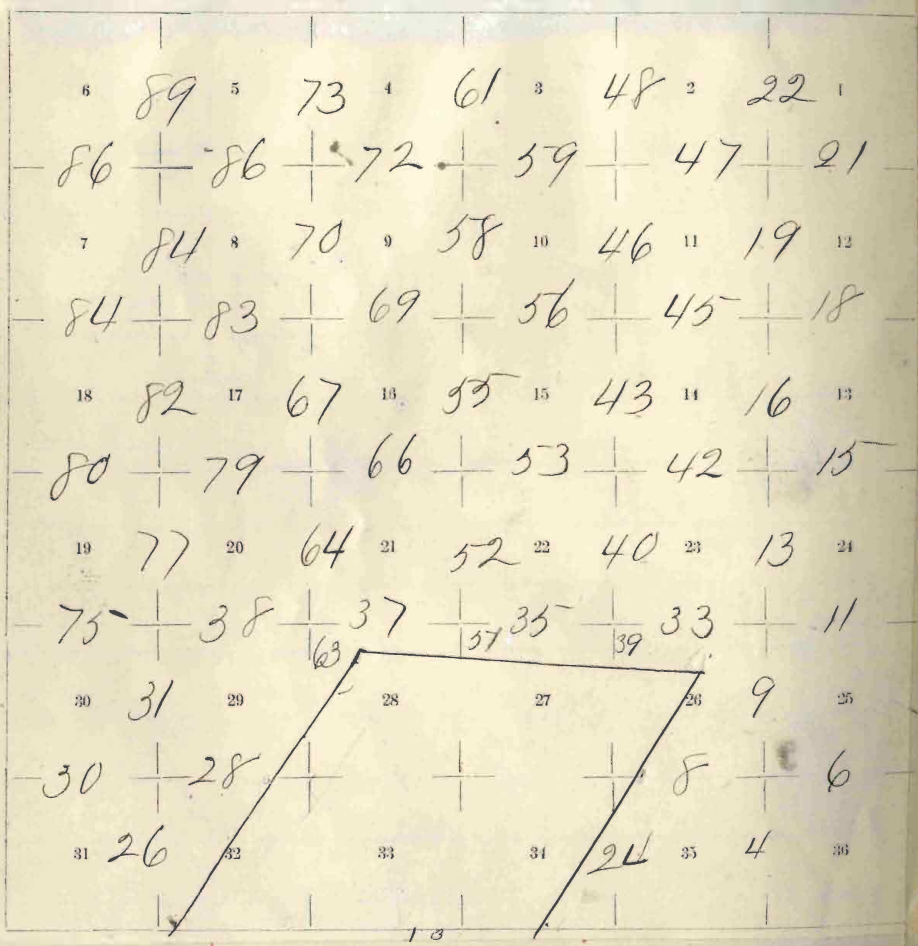 6 89 5 73 4 61 3 48 2 22 1
86 86 72 59 47 21
7 84 8 70 9 58 10 46 11 19 12
84 83 69 56 45 18
18 82 17 67 16 55 15 43 14 16 13
80 79 66 53 42 15
19 77 20 64 21 52 22 40 23 13 24
75 38 37 35 33 11
63 51 39
30 31 29 28 27 26 9 25
30 28 8 6
31 26 32 33 34 24 35 4 36